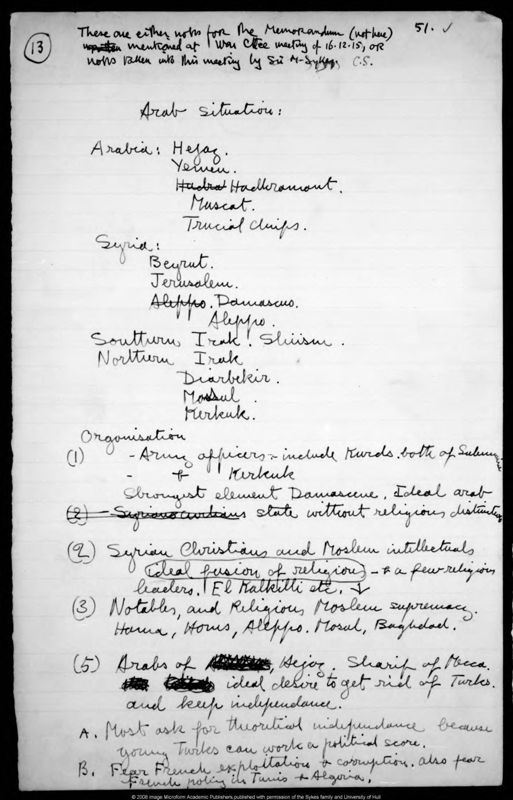 13
51. ✓
These are either notes for the Memorandum (not here)
mentioned at War Ctee meeting of 16.12.15, OR
notes taken into this meeting by Sir M. Sykes C.S.
Arab Situation:
Arabia: Hejaz.
Yemen.
Hadra Hadhramont.
Muscat.
Trucial chiefs.
Syria:
Beyrut.
Jerusalem.
Aleppo. Damascus.
Aleppo.
Southern Irak. Shiism.
Northern Irak
Diarbekir.
Mosul.
Kerkuk.
Organisation
(1) - Army officers - include Kurds. both of
- & Kerkuk
Strongest element Damascene. Ideal arab
(2) - state without religious distinction
(2) Syrian Christians and Moslem intellectuals
ideal fusion of religions - & a few religious
leaders. El etc.
(3) Notables, and Religious Moslem supremacy.
Hama, Homs, Aleppo. Mosul, Baghdad.
(5) Arabs of Hejaz. Sharif of Mecca.
ideal desire to get rid of Turks.
and keep independance.
A. Most ask for theoretical independance because
young Turks can work a political score.
B. Fear French exploitation & corruption. also fear
French policy in Tunis & Algeria.
© 2008 image Microform Academic Publishers published with permission of the Sykes family and University of Hull